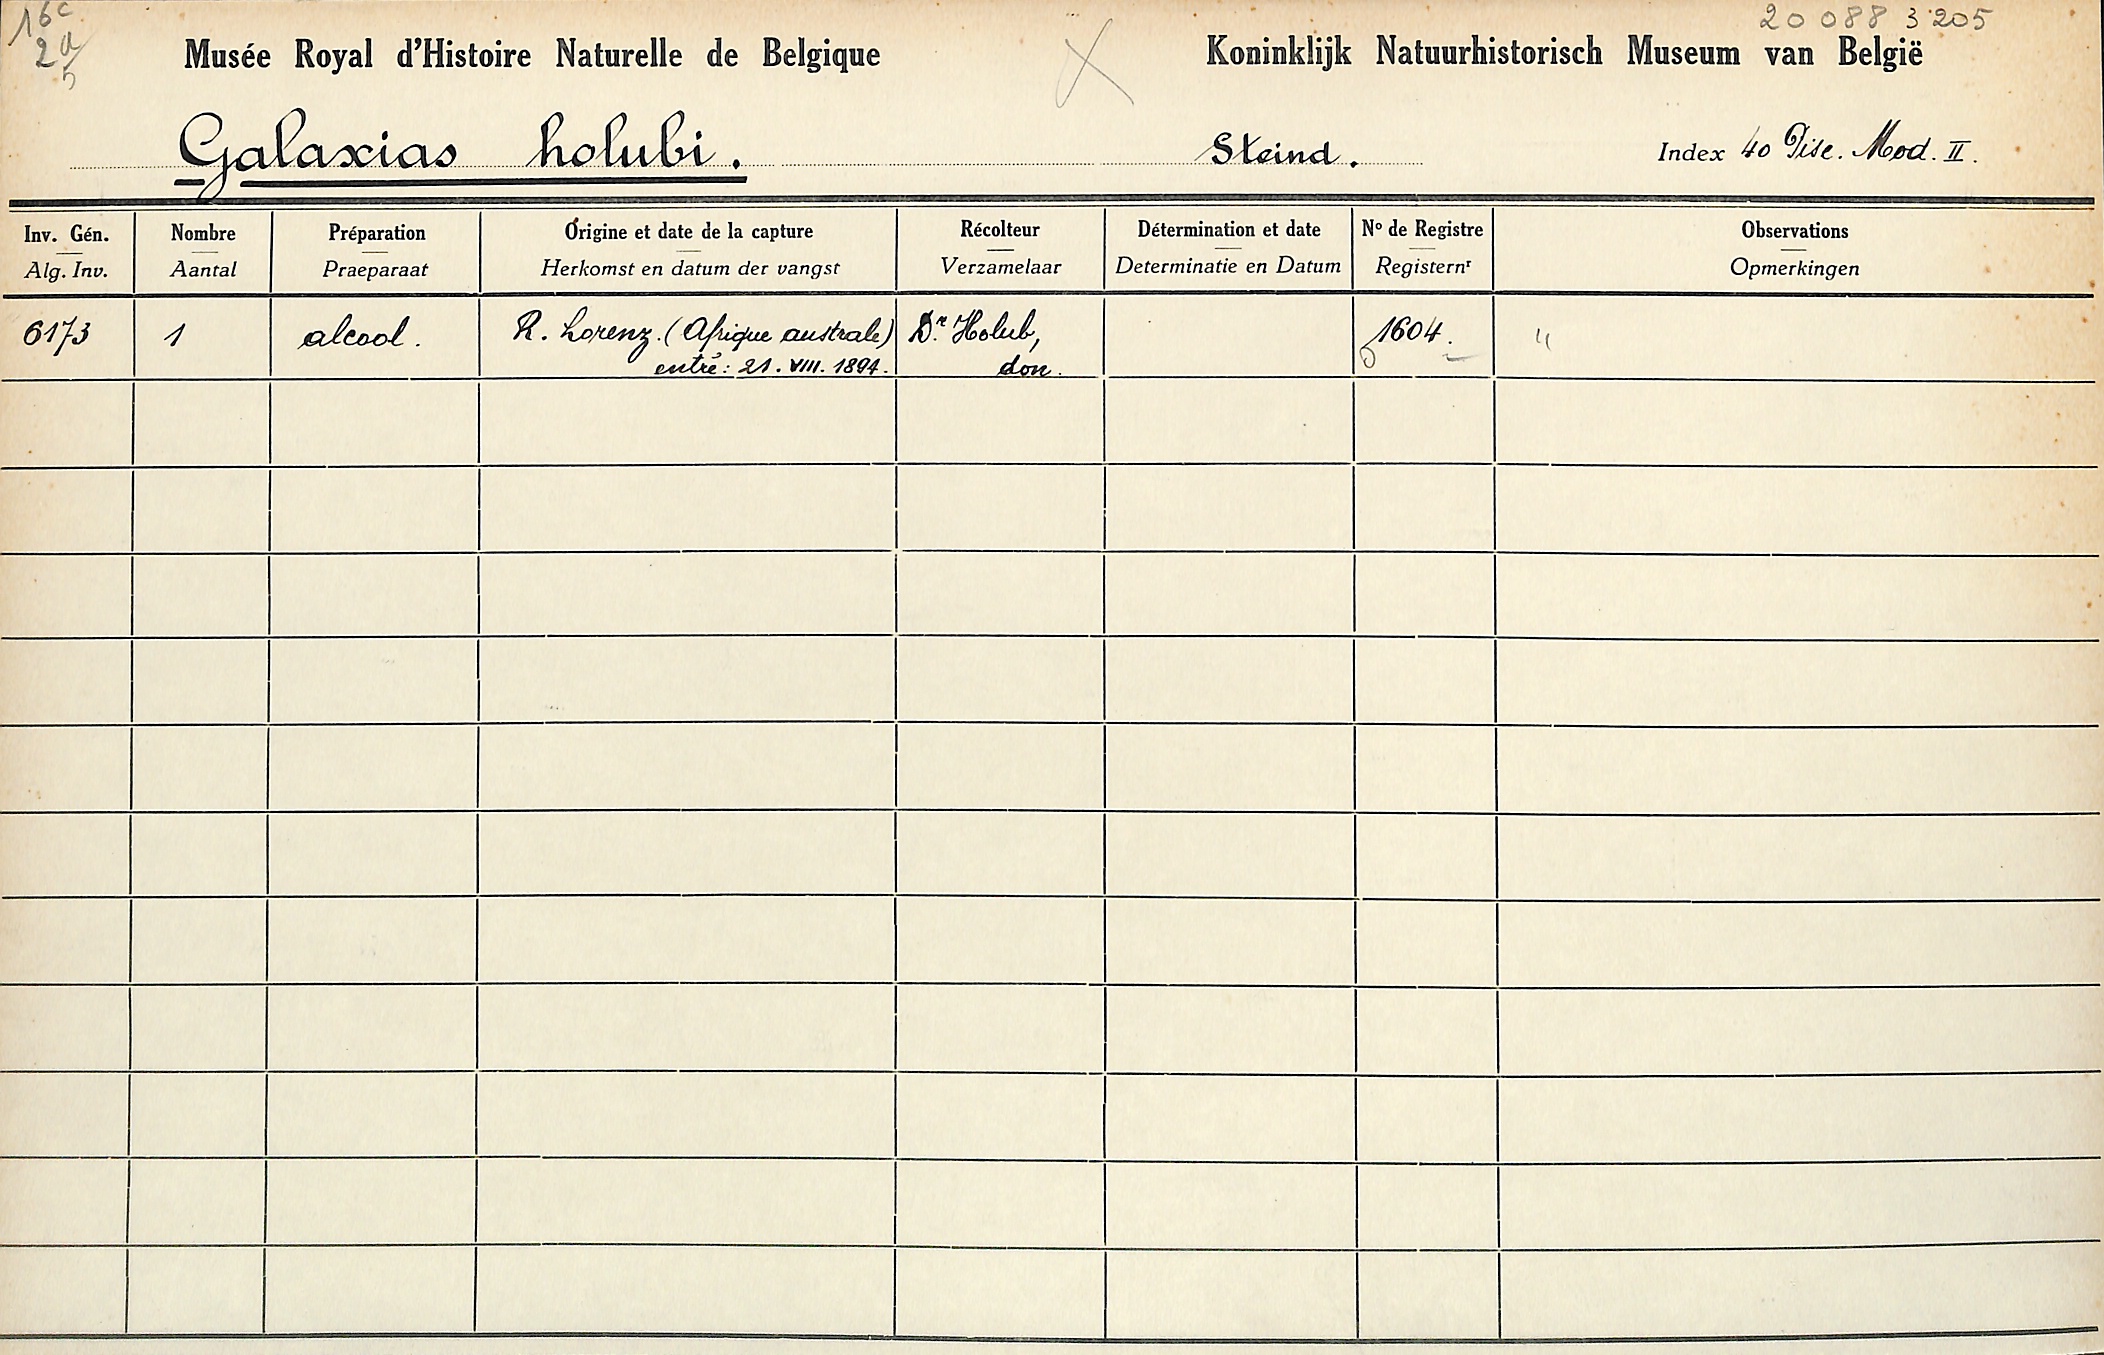 16c
2a
5
20 088 3205
Musée Royal d'Histoire Naturelle de Belgique
Koninklijk Natuurhistorisch Museum van België
Galaxias holubi.
Steind.
Index 40 Pisc. Mod. II.
Inv. Gén.
Alg. Inv.
Nombre
Aantal
Préparation
Praeparaat
Origine et date de la capture
Herkomst en datum der vangst
Récolteur
Verzamelaar
Détermination et date
Determinatie en Datum
Nº de Registre
Registernʳ
Observations
Opmerkingen
6173
1
alcool.
R. Lorenz. (Afrique australe)
entré: 21. VIII. 1894.
Dʳ. Holub,
don.
1604.
"